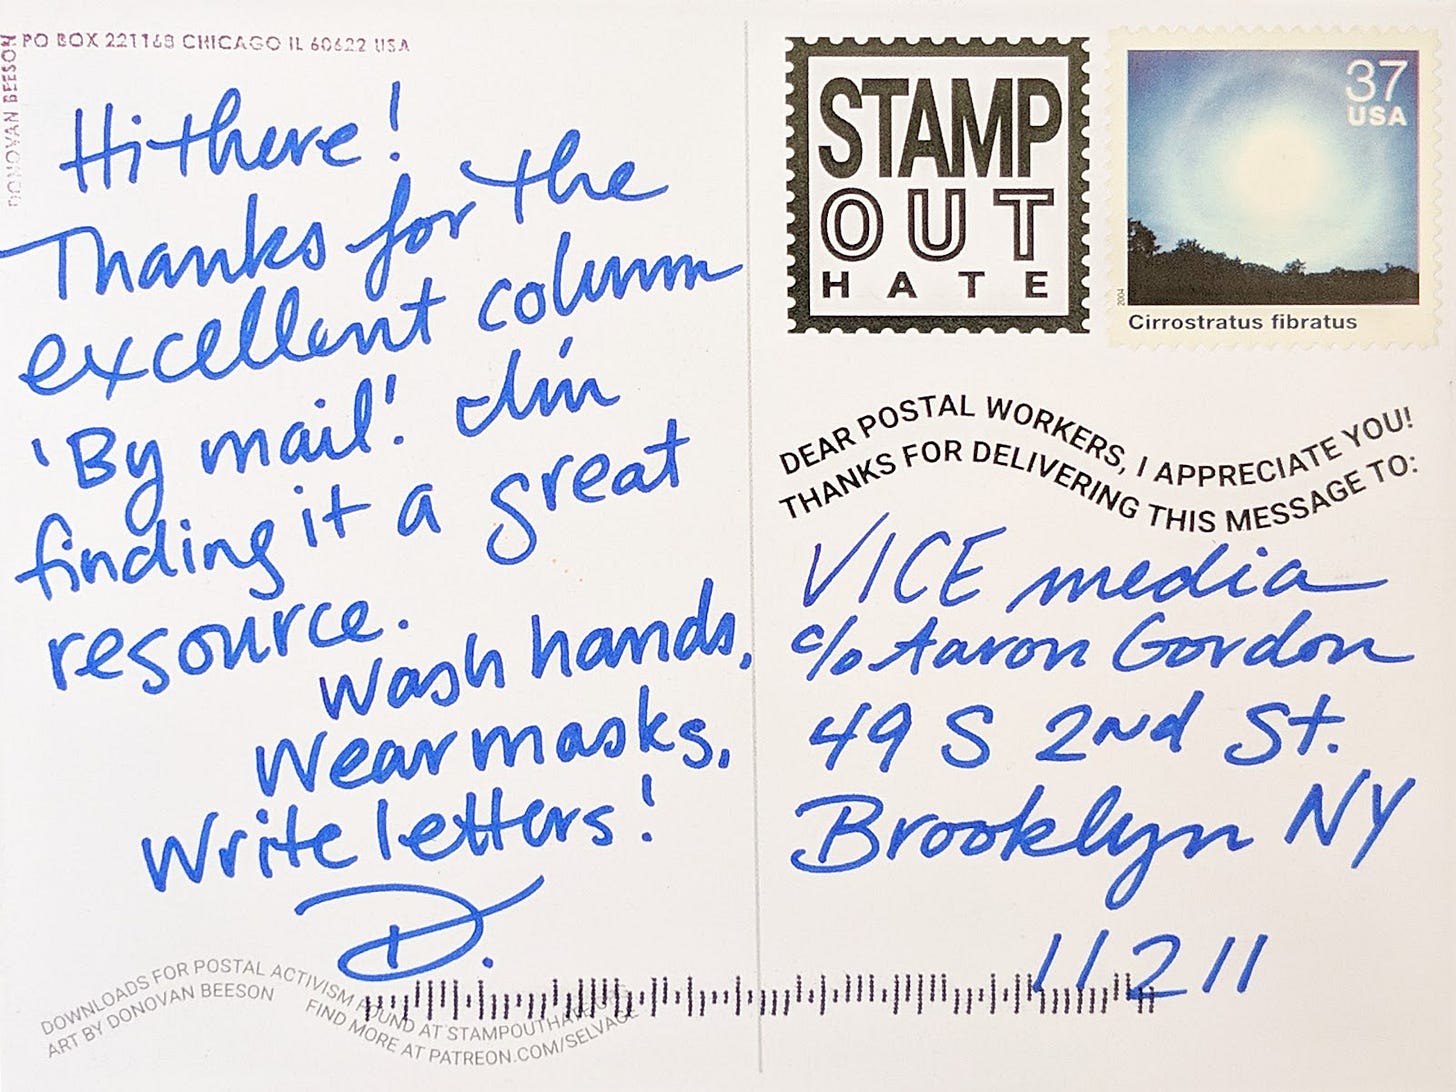 DONOVAN BEESON
PO BOX 221168 CHICAGO IL 60622 USA
Hi there!
Thanks for the
excellent column
'By mail'. I'm
finding it a great
resource.
Wash hands,
Wear masks,
Write letters!
D.
DOWNLOADS FOR POSTAL ACTIVISM FOUND AT STAMPOUTHATE.ORG
ART BY DONOVAN BEESON FIND MORE AT PATREON.COM/SELVAGE
STAMP
OUT
HATE
37
USA
2004
Cirrostratus fibratus
DEAR POSTAL WORKERS, I APPRECIATE YOU!
THANKS FOR DELIVERING THIS MESSAGE TO:
VICE media
c/o Aaron Gordon
49 S 2nd St.
Brooklyn NY
11211